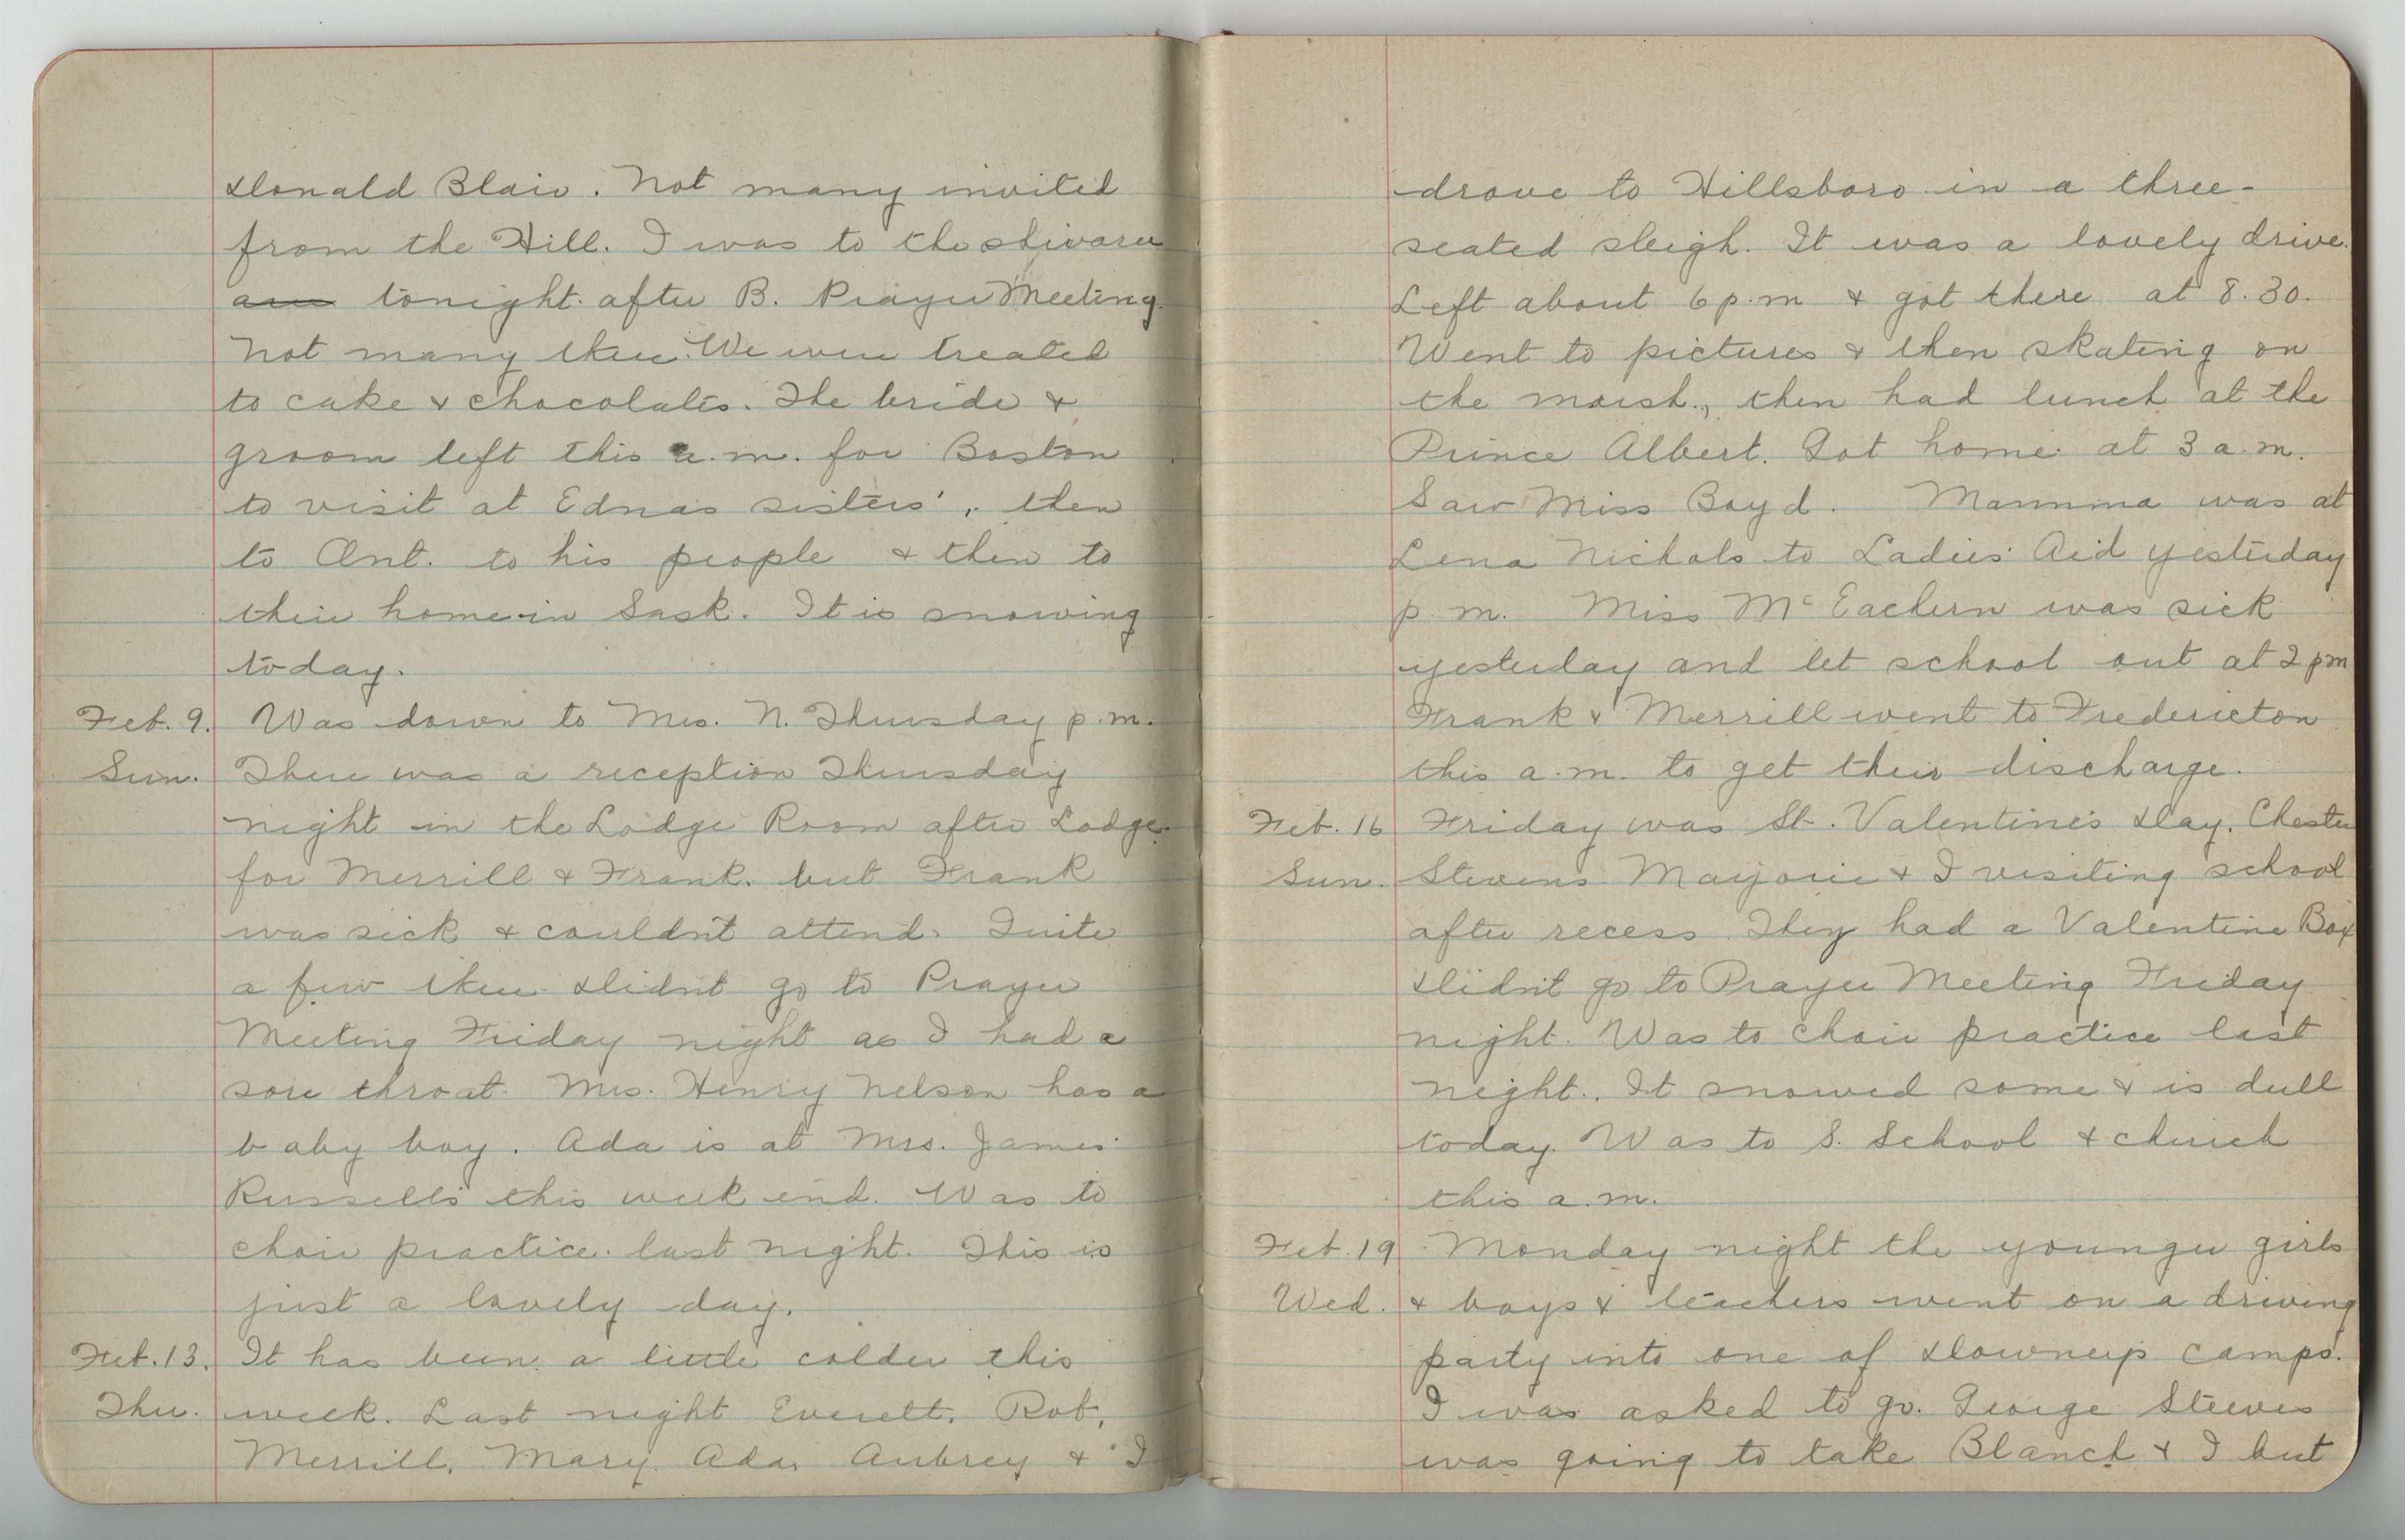 Donald Blair. Not many invited
from the Hill. I was to the shivaree
am tonight after B. Prayer Meeting.
Not many there. We were treated
to cake & chocolates. The bride &
groom left this a.m. for Boston
to visit at Edna's sisters', then
to Ont. to his people & then to
their home in Sask. It is snowing
today.
Feb. 9. Was down to Mrs. N. Thursday p.m.
Sun. There was a reception Thursday
night in the Lodge Room after Lodge
for Merrill & Frank. but Frank
was sick & couldn't attend. Quite
a few there. Didn't go to Prayer
Meeting Friday night as I had a
sore throat. Mrs. Henry Nelson has a
baby boy. Ada is at Mrs. James
Russell's this week end. Was to
choir practice last night. This is
just a lovely day.
Feb. 13. It has been a little colder this
Thu. week. Last night Everett, Rob,
Merrill, Mary, Ada, Aubrey & I
drove to Hillsboro in a three-
seated sleigh. It was a lovely drive.
Left about 6 p.m & got there at 8.30.
Went to pictures & then skating on
the marsh., then had lunch at the
Prince Albert. Got home at 3 a.m.
Saw Miss Boyd. Mamma was at
Lena Nichols to Ladies' Aid yesterday
p.m. Miss McEachern was sick
yesterday and let school out at 2 pm
Frank & Merrill went to Fredericton
this a.m. to get their discharge.
Feb. 16 Friday was St. Valentine's Day. Chester
Sun. Stevens Marjorie & I visiting school
after recess. They had a Valentine Box
Didn't go to Prayer Meeting Friday
night. Was to choir practice last
night. It snowed some & is dull
today. Was to S. School & church
this a.m.
Feb. 19 Monday night the younger girls
Wed. & boys & teachers went on a driving
party into one of Downeys camps.
I was asked to go. George Steeves
was going to take Blanch & I but